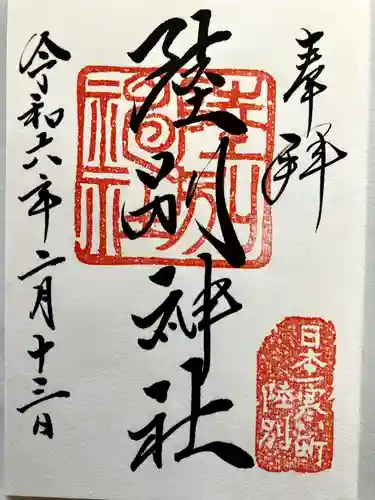 奉拝
陸別神社
陸別神社
令和六年二月十三日
日本一寒い町
陸別